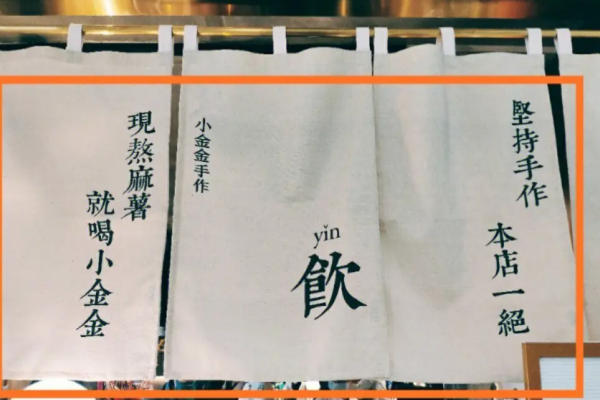 堅持手作
本店一絕
yǐn
飲
小金金手作
現熬麻薯
就喝小金金